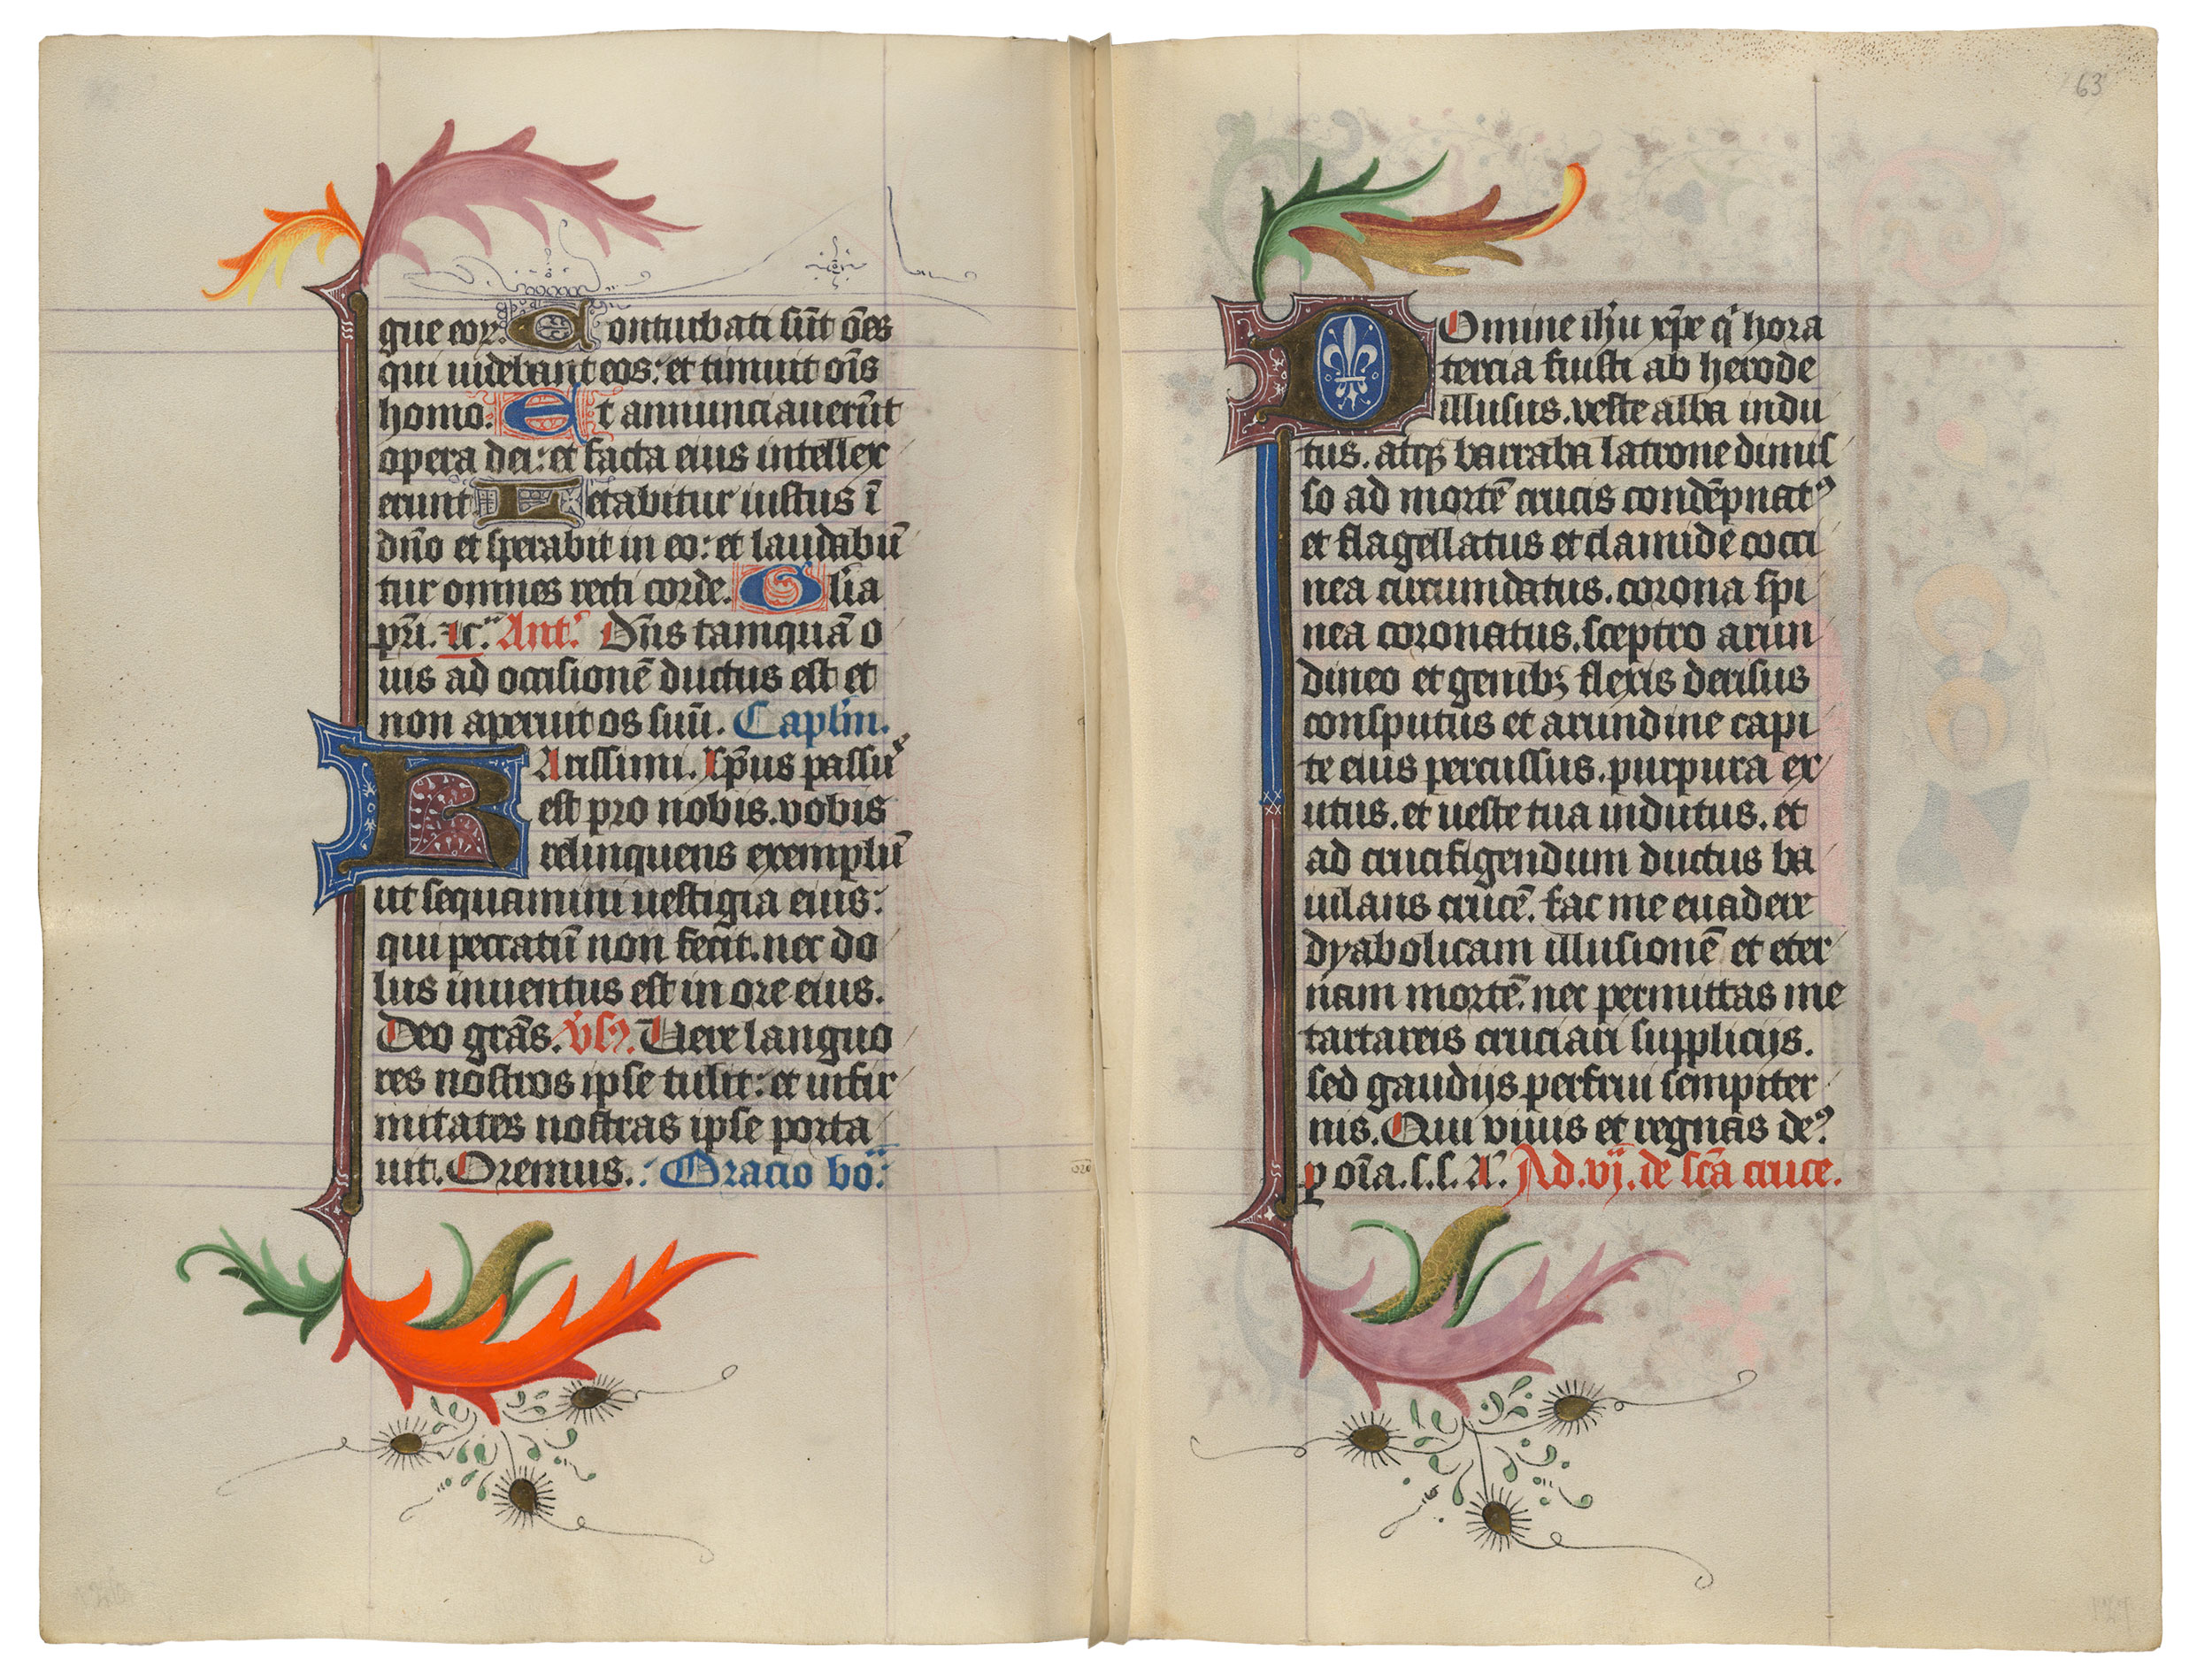 que eoꝝ. Conturbati sūt ōēs
qui uidebant eos: et timuit oīs
homo. Et annunciauerūt
opera dei: et facta eius intellex
erunt Letabitur iustus ī
dn̄o et sperabit in eo: et laudabū
tur omnes recti corde. Gl̄ia
pr̄i. ⁊c̄. Ant. Dn̄s tamquā o
uis ad occisionē ductus est et
non aperuit os suū. Capl̄m.
KArissimi. xp̄us passꝰ
est pro nobis. vobis
relinquens exemplū
ut sequamini uestigia eius:
qui peccatū non fecit. nec do
lus inuentus est in ore eius.
Deo grās. Vs̄. Uere languo
res nostros ipse tulit: et infir
mitates nostras ipse porta
uit. Oremus. Oracio bo
63
DOmine ih̄u xp̄e qͥ hora
tercia fuisti ab herode
illusus. veste alba indu
tus. atqꝫ barraba latrone dimis
so ad mortē crucis condēpnatꝰ
et flagellatus et clamide cocci
nea circumdatus. corona spi
nea coronatus. sceptro arun
dineo et genibꝫ flexis derisus
consputus et arundine capi
te eius percussus. purpura ex
utus. et ueste tua indutus. et
ad crucifigendum ductus ba
iulans crucē. fac me euadere
dyabolicam illusionē et eter
nam mortē. nec permittas me
tartareis cruciari supplicijs.
sed gaudijs perfrui sempiter
nis. Qui viuis et regnas deꝰ
ꝑ oīa. s. s. A. Ad. vj. de sc̄a cruce.